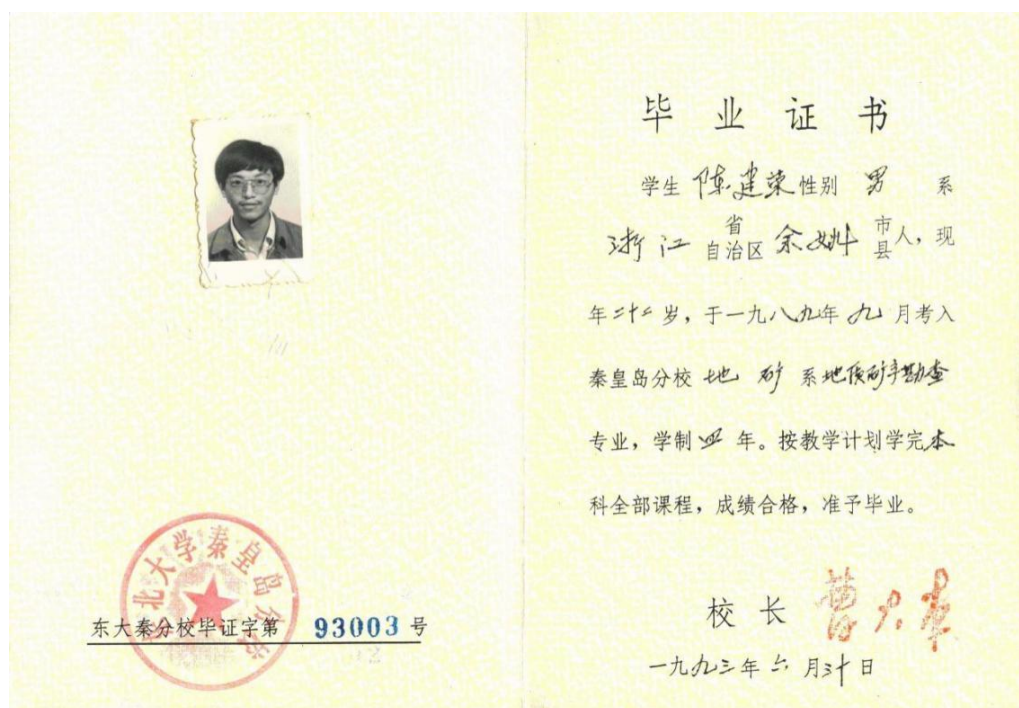 东北大学秦皇岛分校
东大秦分校毕证字第 93003 号
毕业证书
学生 陈建荣 性别 男 系
浙江 省 自治区 余姚 市 县 人，现
年二十二岁，于一九八九年九月考入
秦皇岛分校 地矿 系 地质矿产勘查
专业，学制四年。按教学计划学完本
科全部课程，成绩合格，准予毕业。
校长
一九九三年六月三十日